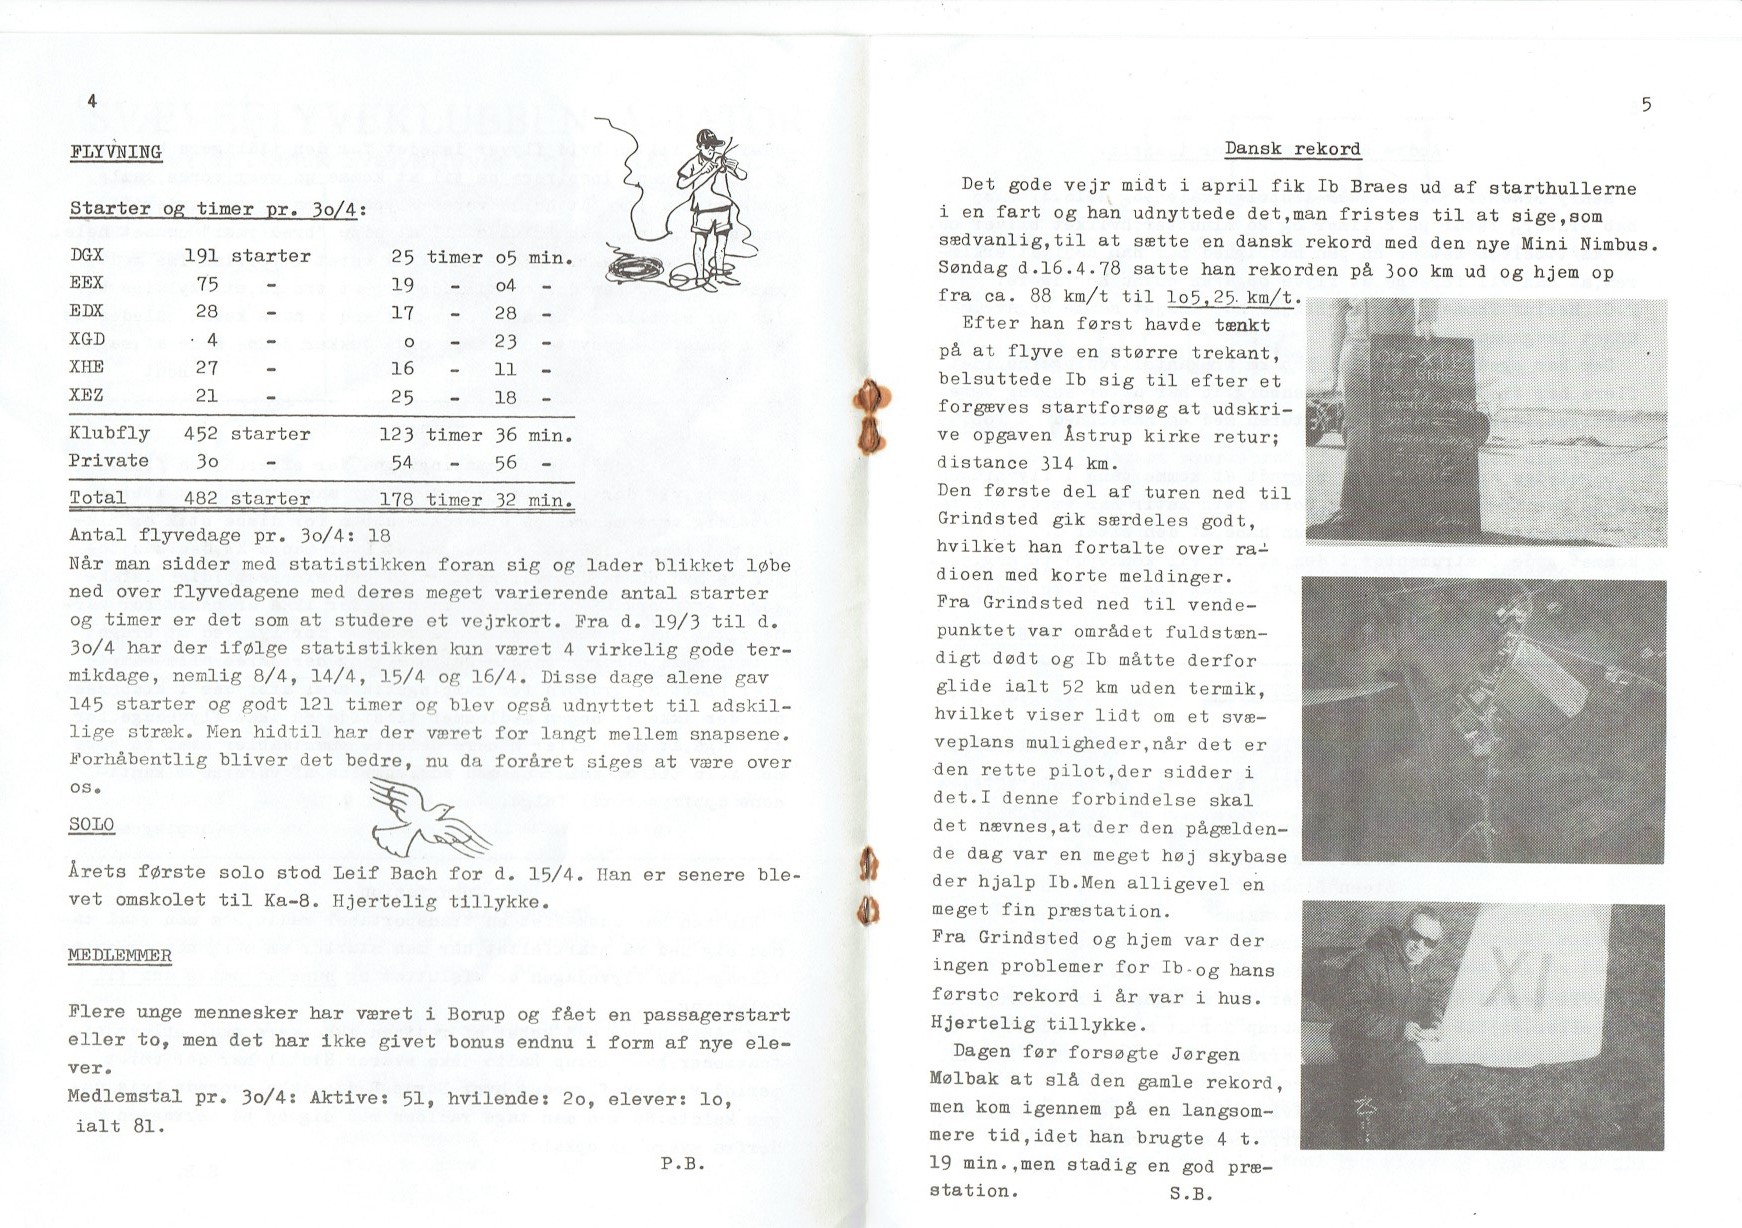 4
FLYVNING
Starter og timer pr. 3o/4:
DGX 191 starter 25 timer o5 min.
EEX 75 - 19 - o4 -
EDX 28 - 17 - 28 -
XGD 4 - o - 23 -
XHE 27 - 16 - 11 -
XEZ 21 - 25 - 18 -
Klubfly 452 starter 123 timer 36 min.
Private 3o - 54 - 56 -
Total 482 starter 178 timer 32 min.
Antal flyvedage pr. 3o/4: 18
Når man sidder med statistikken foran sig og lader blikket løbe
ned over flyvedagene med deres meget varierende antal starter
og timer er det som at studere et vejrkort. Fra d. 19/3 til d.
3o/4 har der ifølge statistikken kun været 4 virkelig gode ter-
mikdage, nemlig 8/4, 14/4, 15/4 og 16/4. Disse dage alene gav
145 starter og godt 121 timer og blev også udnyttet til adskil-
lige stræk. Men hidtil har der været for langt mellem snapsene.
Forhåbentlig bliver det bedre, nu da foråret siges at være over
os.
SOLO
Årets første solo stod Leif Bach for d. 15/4. Han er senere ble-
vet omskolet til Ka-8. Hjertelig tillykke.
MEDLEMMER
Flere unge mennesker har været i Borup og fået en passagerstart
eller to, men det har ikke givet bonus endnu i form af nye ele-
ver.
Medlemstal pr. 3o/4: Aktive: 51, hvilende: 2o, elever: 1o,
ialt 81.
P.B.
5
Dansk rekord
Det gode vejr midt i april fik Ib Braes ud af starthullerne
i en fart og han udnyttede det,man fristes til at sige,som
sædvanlig,til at sætte en dansk rekord med den nye Mini Nimbus.
Søndag d.16.4.78 satte han rekorden på 3oo km ud og hjem op
fra ca. 88 km/t til 1o5,25 km/t.
Efter han først havde tænkt
på at flyve en større trekant,
belsuttede Ib sig til efter et
forgæves startforsøg at udskri-
ve opgaven Åstrup kirke retur;
distance 314 km.
Den første del af turen ned til
Grindsted gik særdeles godt,
hvilket han fortalte over ra-
dioen med korte meldinger.
Fra Grindsted ned til vende-
punktet var området fuldstæn-
digt dødt og Ib måtte derfor
glide ialt 52 km uden termik,
hvilket viser lidt om et svæ-
veplans muligheder,når det er
den rette pilot,der sidder i
det.I denne forbindelse skal
det nævnes,at der den pågælden-
de dag var en meget høj skybase
der hjalp Ib.Men alligevel en
meget fin præstation.
Fra Grindsted og hjem var der
ingen problemer for Ib og hans
første rekord i år var i hus.
Hjertelig tillykke.
Dagen før forsøgte Jørgen
Mølbak at slå den gamle rekord,
men kom igennem på en langsom-
mere tid,idet han brugte 4 t.
19 min.,men stadig en god præ-
station.
S.B.
XI